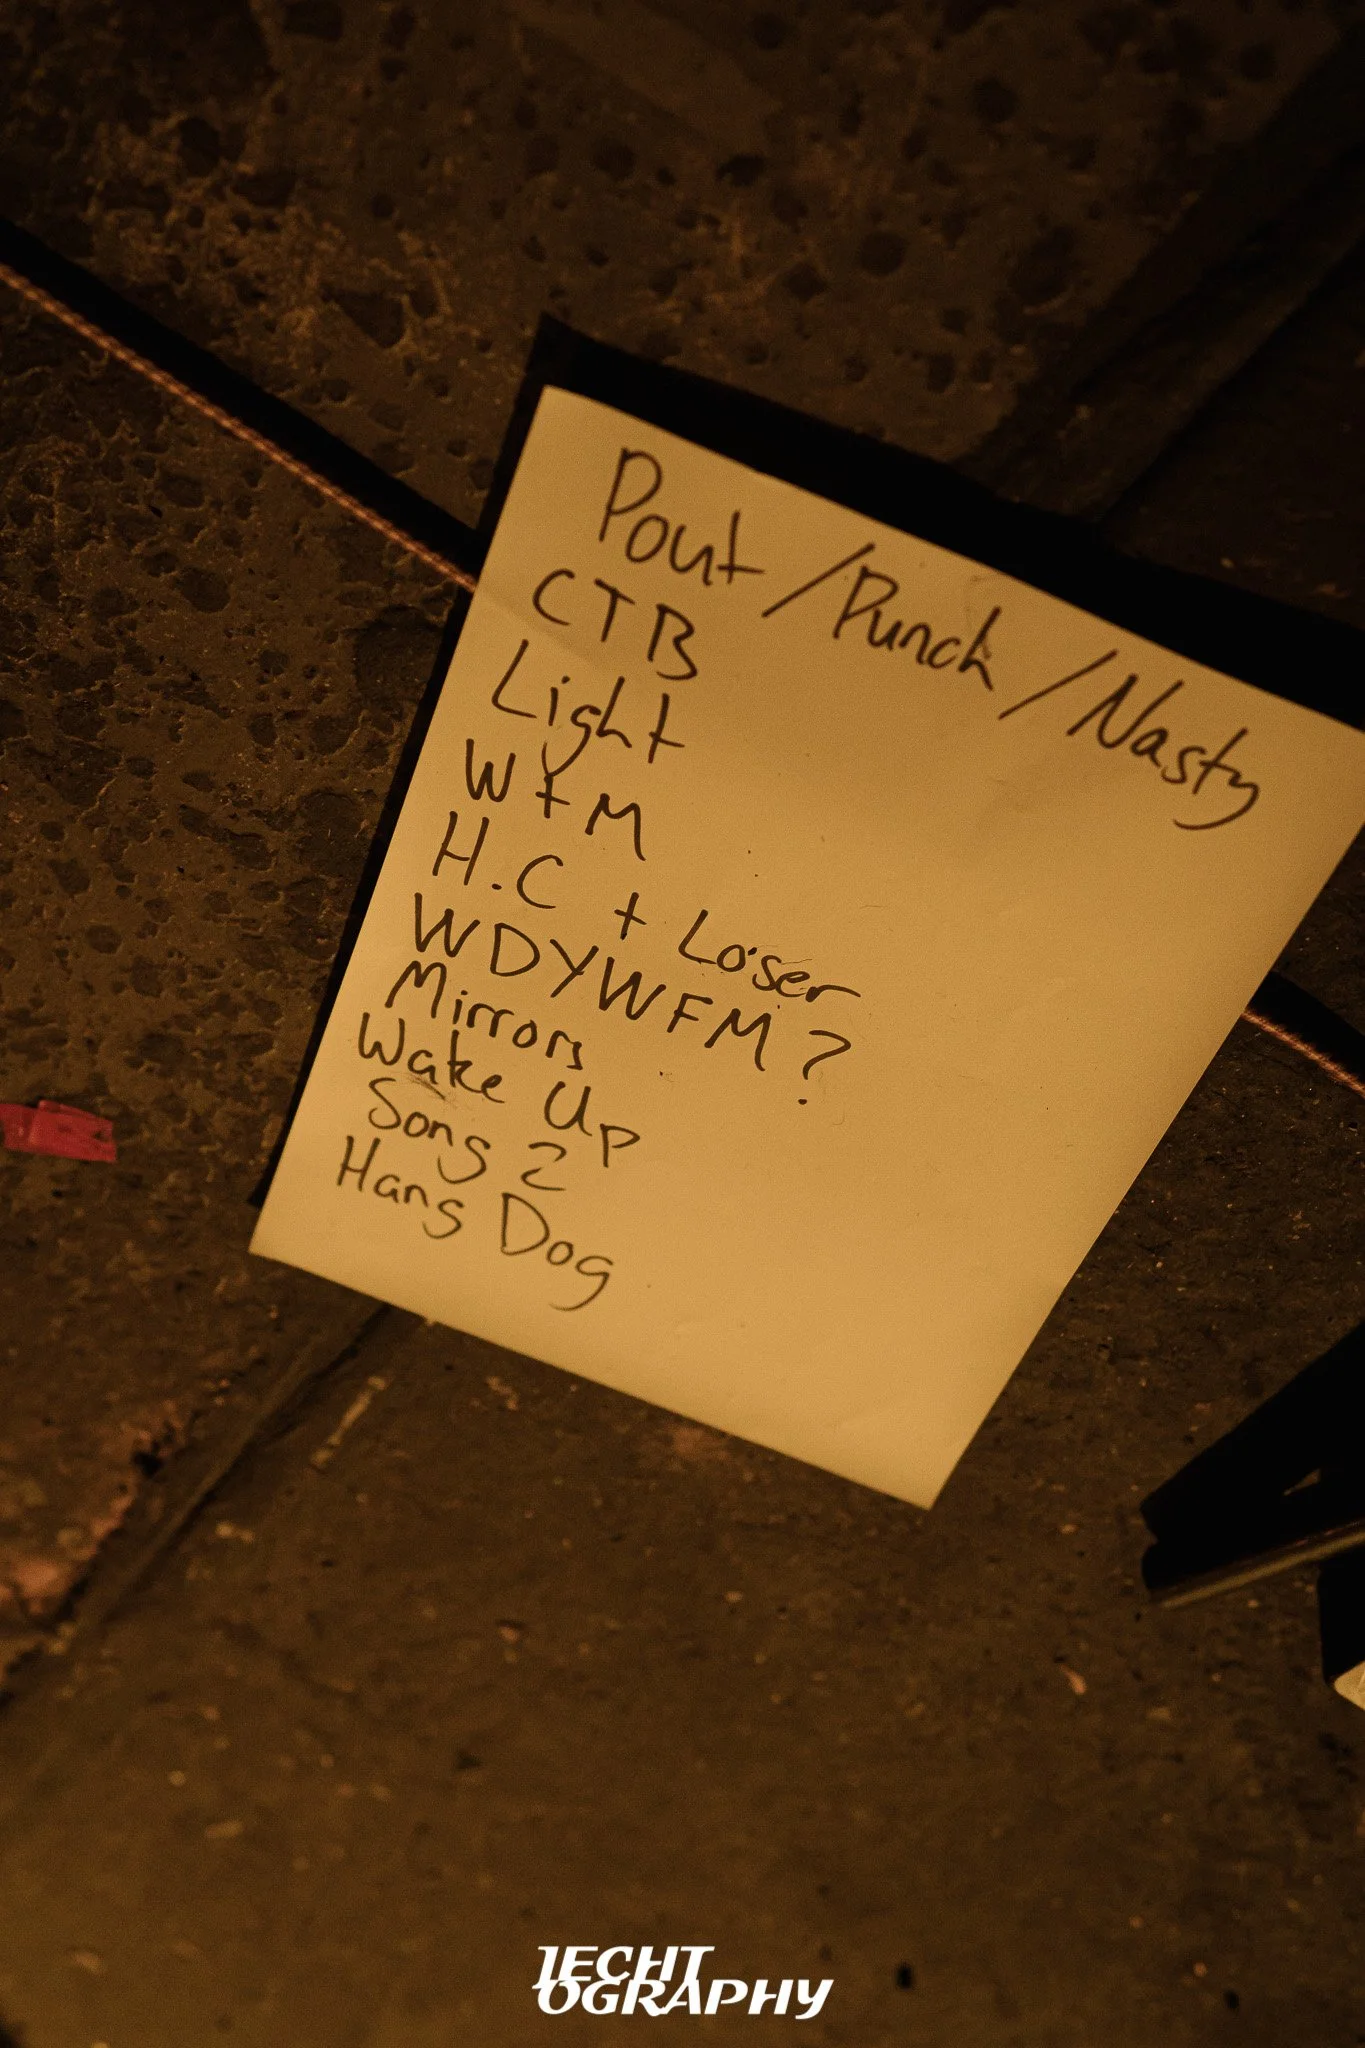 Pout / Punch / Nasty
CTB
Light
WFM
H.C + Loser
WDYWFM?
Mirrors
Wake Up
Song 2
Hang Dog
IECHT
OGRAPHY